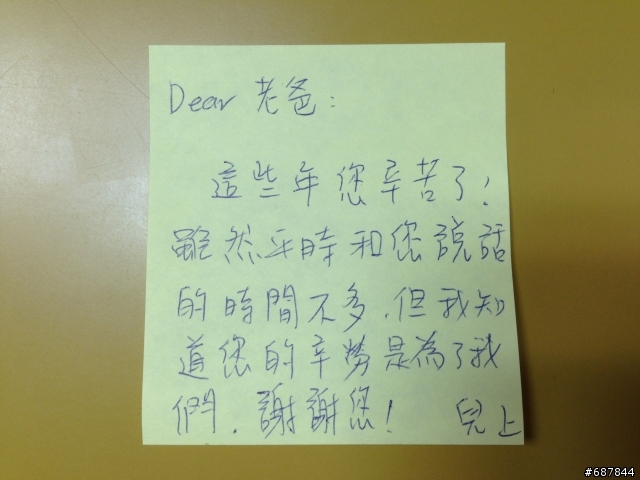 Dear 老爸：
這些年您辛苦了！
雖然平時和您說話
的時間不多，但我知
道您的辛勞是為了我
們．謝謝您！ 兒上
#687844